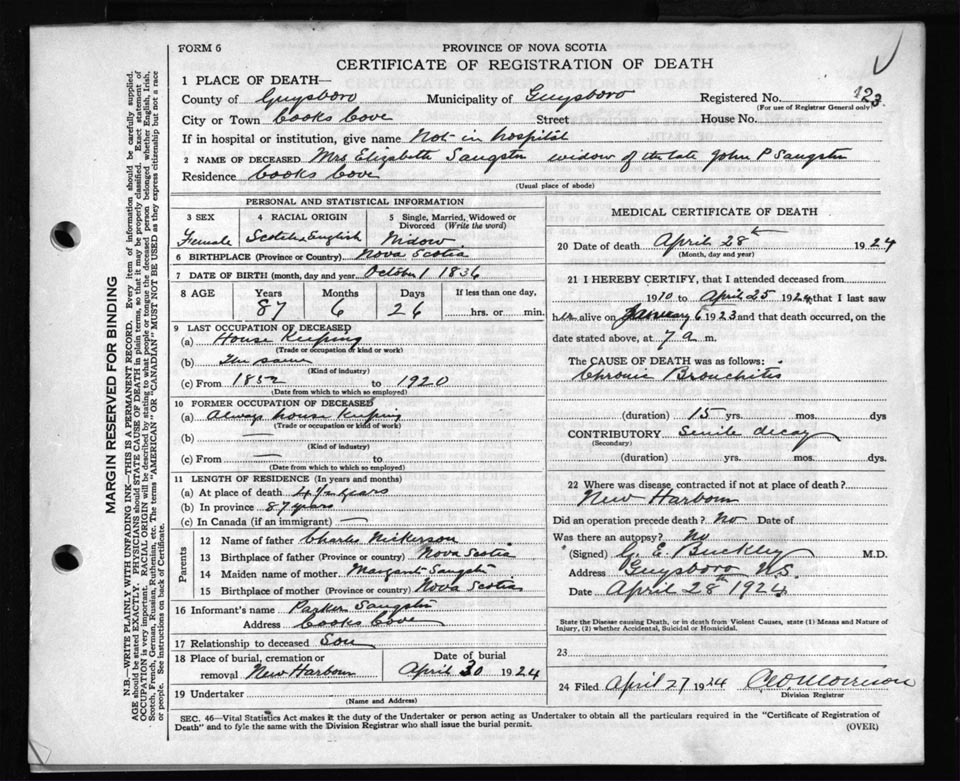 FORM 6
PROVINCE OF NOVA SCOTIA
CERTIFICATE OF REGISTRATION OF DEATH
1 PLACE OF DEATH—
County of Guysboro Municipality of Guysboro Registered No. 123
(For use of Registrar General only)
City or Town Cooks Cove Street House No.
If in hospital or institution, give name Not in hospital
2 NAME OF DECEASED Mrs Elizabeth Sangster widow of the late John P Sangster
Residence Cooks Cove
(Usual place of abode)
PERSONAL AND STATISTICAL INFORMATION
3 SEX
Female
4 RACIAL ORIGIN
Scotch & English
5 Single, Married, Widowed or Divorced (Write the word)
Widow
6 BIRTHPLACE (Province or Country) Nova Scotia
7 DATE OF BIRTH (month, day and year) October 1 1836
8 AGE Years Months Days If less than one day,
87 6 26 hrs. or min.
9 LAST OCCUPATION OF DECEASED
(a) House Keeping
(Trade or occupation or kind or work)
(b) The same
(Kind of industry)
(c) From 1852 to 1920
(Date from which to which so employed)
10 FORMER OCCUPATION OF DECEASED
(a) Always house keeping
(Trade or occupation or kind of work)
(b) —
(Kind of industry)
(c) From — to
(Date from which to which so employed)
11 LENGTH OF RESIDENCE (In years and months)
(a) At place of death 4 1/2 years
(b) In province 87 years
(c) In Canada (if an immigrant) —
Parents
12 Name of father Charles Nickerson
13 Birthplace of father (Province or country) Nova Scotia
14 Maiden name of mother Margaret Sangster
15 Birthplace of mother (Province or country) Nova Scotia
16 Informant's name Parker Sangster
Address Cooks Cove
17 Relationship to deceased Son
18 Place of burial, cremation or removal New Harbour
Date of burial
April 30 1924
19 Undertaker
(Name and Address)
MEDICAL CERTIFICATE OF DEATH
20 Date of death April 28 1924
(Month, day and year)
21 I HEREBY CERTIFY, that I attended deceased from
1910 to April 25 1924 that I last saw
h er alive on January 6 1923 and that death occurred, on the
date stated above, at 7 a m.
The CAUSE OF DEATH was as follows:
Chronic Bronchitis
(duration) 15 yrs. mos. dys
CONTRIBUTORY Senile decay
(Secondary)
(duration) yrs. mos. dys.
22 Where was disease contracted if not at place of death?
New Harbour
Did an operation precede death? No Date of
Was there an autopsy? No
(Signed) G. E. Buckley M.D.
Address Guysboro N.S.
Date April 28th 1924
State the Disease causing Death, or in death from Violent Causes, state (1) Means and Nature of
Injury, (2) whether Accidental, Suicidal or Homicidal.
23
24 Filed April 27 1924 C. O. Morrison
Division Registrar
SEC. 46—Vital Statistics Act makes it the duty of the Undertaker or person acting as Undertaker to obtain all the particulars required in the "Certificate of Registration of
Death" and to fyle the same with the Division Registrar who shall issue the burial permit. (OVER)
MARGIN RESERVED FOR BINDING
N.B.—WRITE PLAINLY WITH UNFADING INK—THIS IS A PERMANENT RECORD. Every item of information should be carefully supplied.
AGE should be stated EXACTLY. PHYSICIANS should state CAUSE OF DEATH in plain terms, so that it may be properly classified. Exact statement of
OCCUPATION is very important. RACIAL ORIGIN will be described by stating to what people or tongue the deceased person belonged whether English, Irish,
Scotch, French, German, Russian, Ruthenian, etc. The terms "AMERICAN" OR "CANADIAN" MUST NOT BE USED as they express citizenship but not a race
or people. See instructions on back of Certificate.